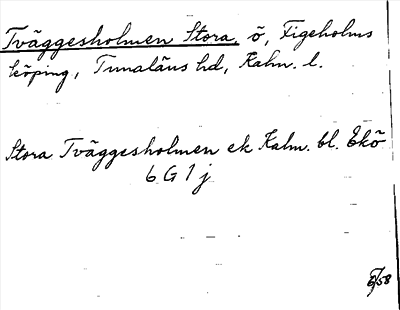 Tväggesholmen Stora, ö, Figeholms
köping, Tunaläns hd, Kalm. l.
Stora Tväggesholmen ek Kalm. bl. Ekö
6 G 1 j